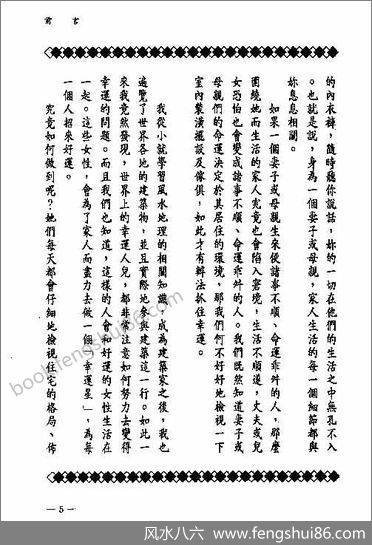 前言
的內衣褲，隨時聽你說話，妳的一切在他們的生活之中無孔不入
。也就是說，身為一個妻子或母親，家人生活的每一個細節都與
妳息息相關。
如果一個妻子或母親生來便諸事不順、命運乖舛的人，那麼
圍繞她而生活的家人究竟也會陷入窘境，生活不順遂，丈夫或兒
女恐怕也會變成諸事不順、命運乖舛的人。我們既然知道妻子或
母親們的命運決定於其居住的環境，那我們何不好好地檢視一下
室內裝潢擺設及傢俱，如此才有辦法抓住幸運。
我從小就學習風水地理的相關知識，成為建築家之後，我也
遍覽了世界各地的建築物，並且實際地參與建築這一行。如此一
來我竟然發現，世界上的幸運人兒，都非常注意如何努力去變得
幸運的問題。而且我們也知道，這樣的人會和好運的女性生活在
一起。這些女性，會為了家人而盡力去做一個「幸運星」，為每
一個人招來好運。
究竟如何做到呢？她們每天都會仔細地檢視住宅的格局、佈
— 5 —
bookfengshui86.com
风水八六 www.fengshui86.com